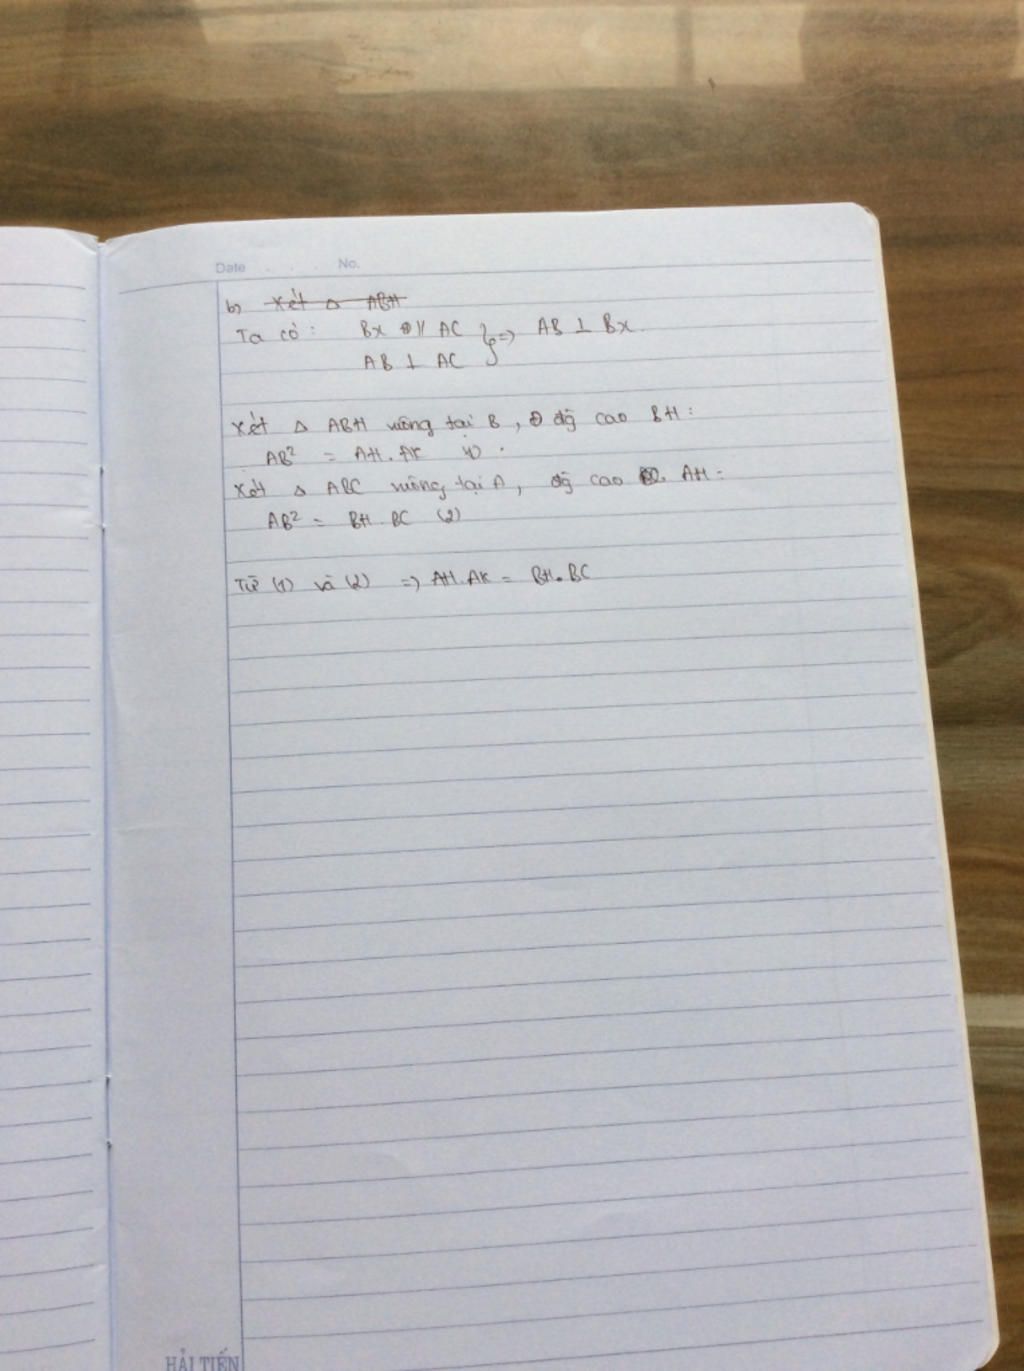 Date . . . No.
b) Xét Δ ABH
Ta có: Bx // AC
AB ⊥ AC } => AB ⊥ Bx.
Xét Δ ABH vuông tại B, đg cao BH:
AB² = AH.AK (1).
Xét Δ ABC vuông tại A, đg cao AH:
AB² = BH.BC (2)
Từ (1) và (2) => AH.AK = BH.BC
HẢI TIẾN